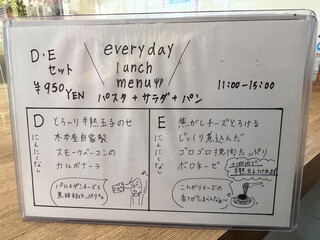 D・E
セット
¥950YEN
everyday
lunch
menu
パスタ+サラダ+パン
11:00-15:00
D
にんにくなし
とろ〜り半熟玉子のせ
自家製
スモークベーコンの
カルボナーラ
パルメザンチーズと
黒胡椒たっぷり
E
にんにくなし
焦がしチーズとろける
じっくり煮込んだ
ゴロゴロ挽肉たっぷり
ボロネーゼ
こだわりチーズの
香りがたまらんなぁ〜